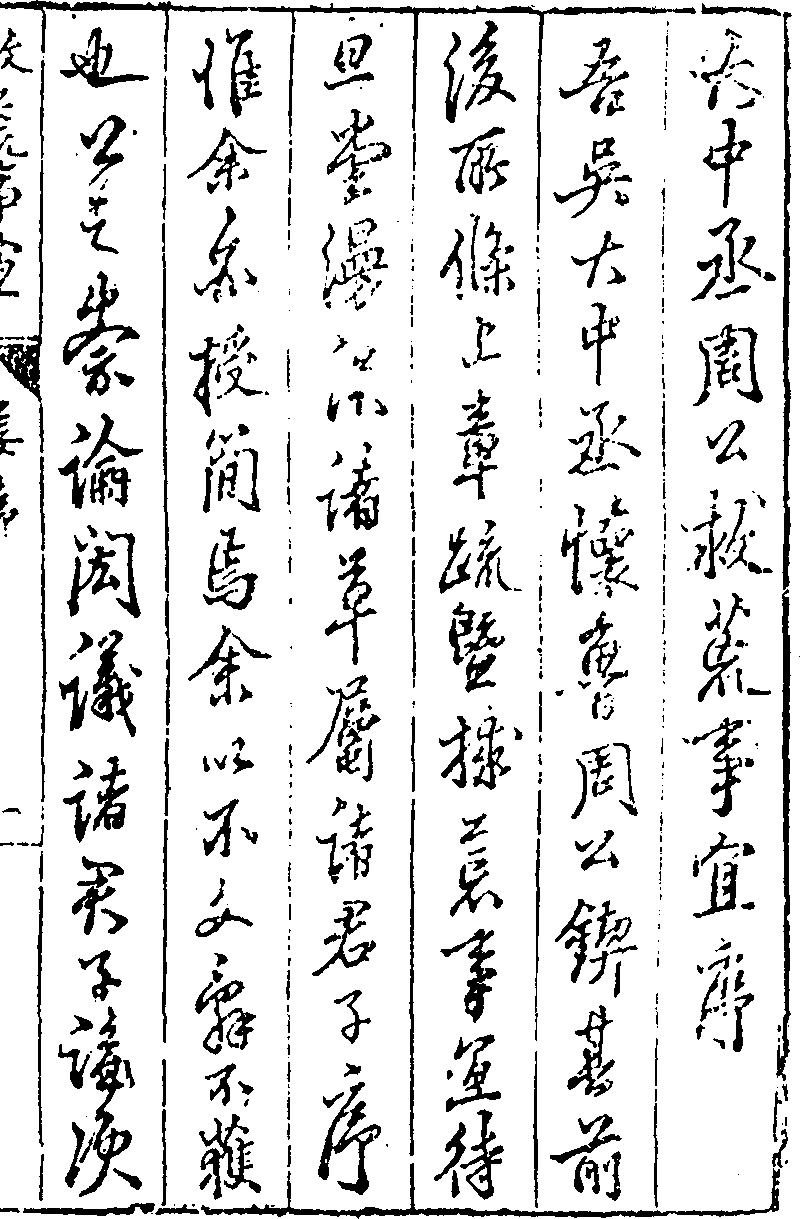 大中丞周公救荒事宜序
吾吳大中丞懷魯周公鍥其前
後所條上章疏暨捄荒事宜待
旦堂漫諸草屬諸君子序
惟余亦授簡焉余以不文辭不獲
也公之崇論閎議諸君子
姜序 一